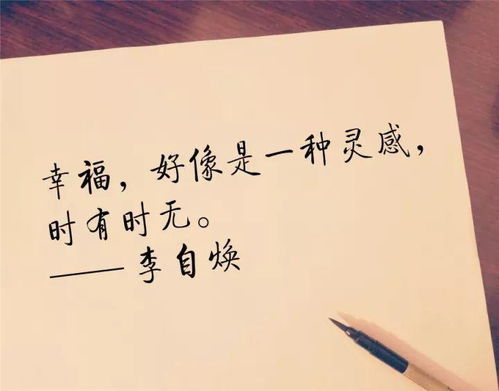 幸福，好像是一种灵感，
时有时无。
—— 李自焕